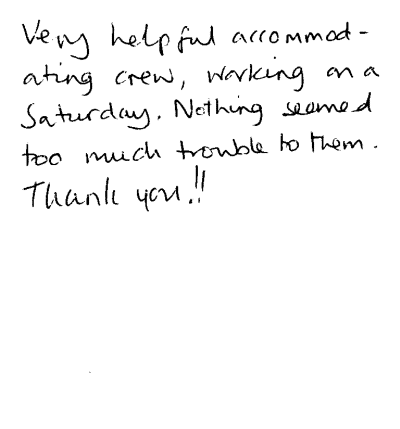 Very helpful accommod-
ating crew, working on a
Saturday. Nothing seemed
too much trouble to them.
Thank you!!